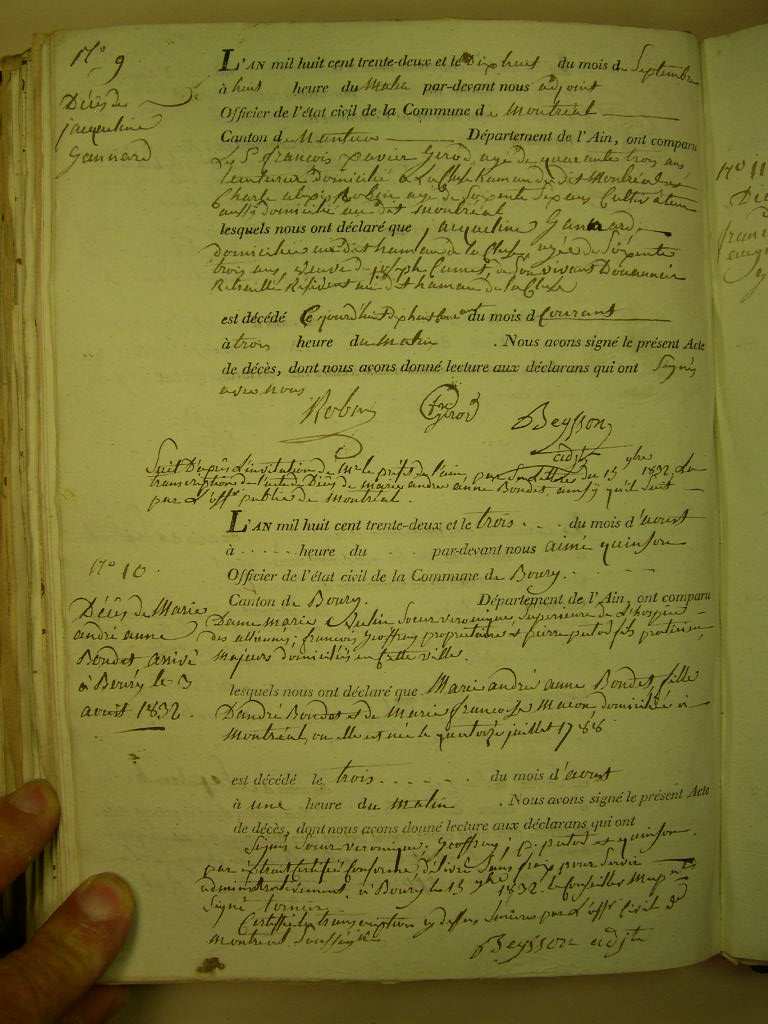 N° 9
Décès de
jacqueline
Gannard
L'AN mil huit cent trente-deux et le Dixhuit du mois de Septembre
à huit heure du Matin par-devant nous adjoint
Officier de l'état civil de la Commune de Montréal
Canton de Nantua Département de l'Ain, ont comparu
Les S. françois xavier Girod, agé de quarante trois ans
domicilié à La Cluse hameau du dit Montréal et
Charle Robin agé de Soixante six ans Cultivateur
aussi domicilié au dit Montréal
lesquels nous ont déclaré que jacqueline Gannard
domiciliée au dit hameau de la Cluse, agée de Soixante
trois ans, veuve de joseph Cumet, vivant Douannier
Retraité Résident au dit hameau de la Cluse
est décédé Ce jourd'huit dixhuit du mois d Courant
à trois heure du Matin . Nous avons signé le présent Acte
de décès, dont nous avons donné lecture aux déclarans qui ont Signés
avec nous
Robin Girod Beysson
adjt
Suit D'après L'invitation de Mr le préfet de l'ain, par Sa Lettre du 15 7bre 1832, La
transcription de l'acte de Décès de marie andré anne Bondet, ainsÿ qu'il Suit
par L'offr public de Montréal.
L'AN mil huit cent trente-deux et le trois . . . du mois d'aoust
à . . . . . heure du . . par-devant nous aimé quinson
Officier de l'état civil de la Commune de Bourg.
N° 10
Décès de Marie
andré anne
Bondet arrivé
à Bourg le 3
aoust 1832.
Canton de Bourg. Département de l'Ain, ont comparu
Dame marie Julin Soeur veronique, Superieure de L'hospice
des alliennés; françois Geoffray proprietaire et pierre putod fils
Majeurs domiciliés en cette ville.
lesquels nous ont déclaré que Marie andré anne Bondet, fille
D'andré Bondet et de Marie françoise Macon, domiciliée à
Montréal, ou elle est née le quatorze juillet 1788
est décédé le trois . . . . . du mois d'aoust
à une heure du matin . Nous avons signé le présent Acte
de décès, dont nous avons donné lecture aux déclarans qui ont
Signés Soeur veronique; Geoffray; p. putod et quinson.
par extrait Certifié Conforme, délivré Sans frais pour Servir
administrativement. à Bourg le 15 7bre 1832. le conseiller
Signé
Certiffié la transcription cy dessus Sincere par L'offr Civil de
Montreal Soussigné
Beysson adjt
N° 11